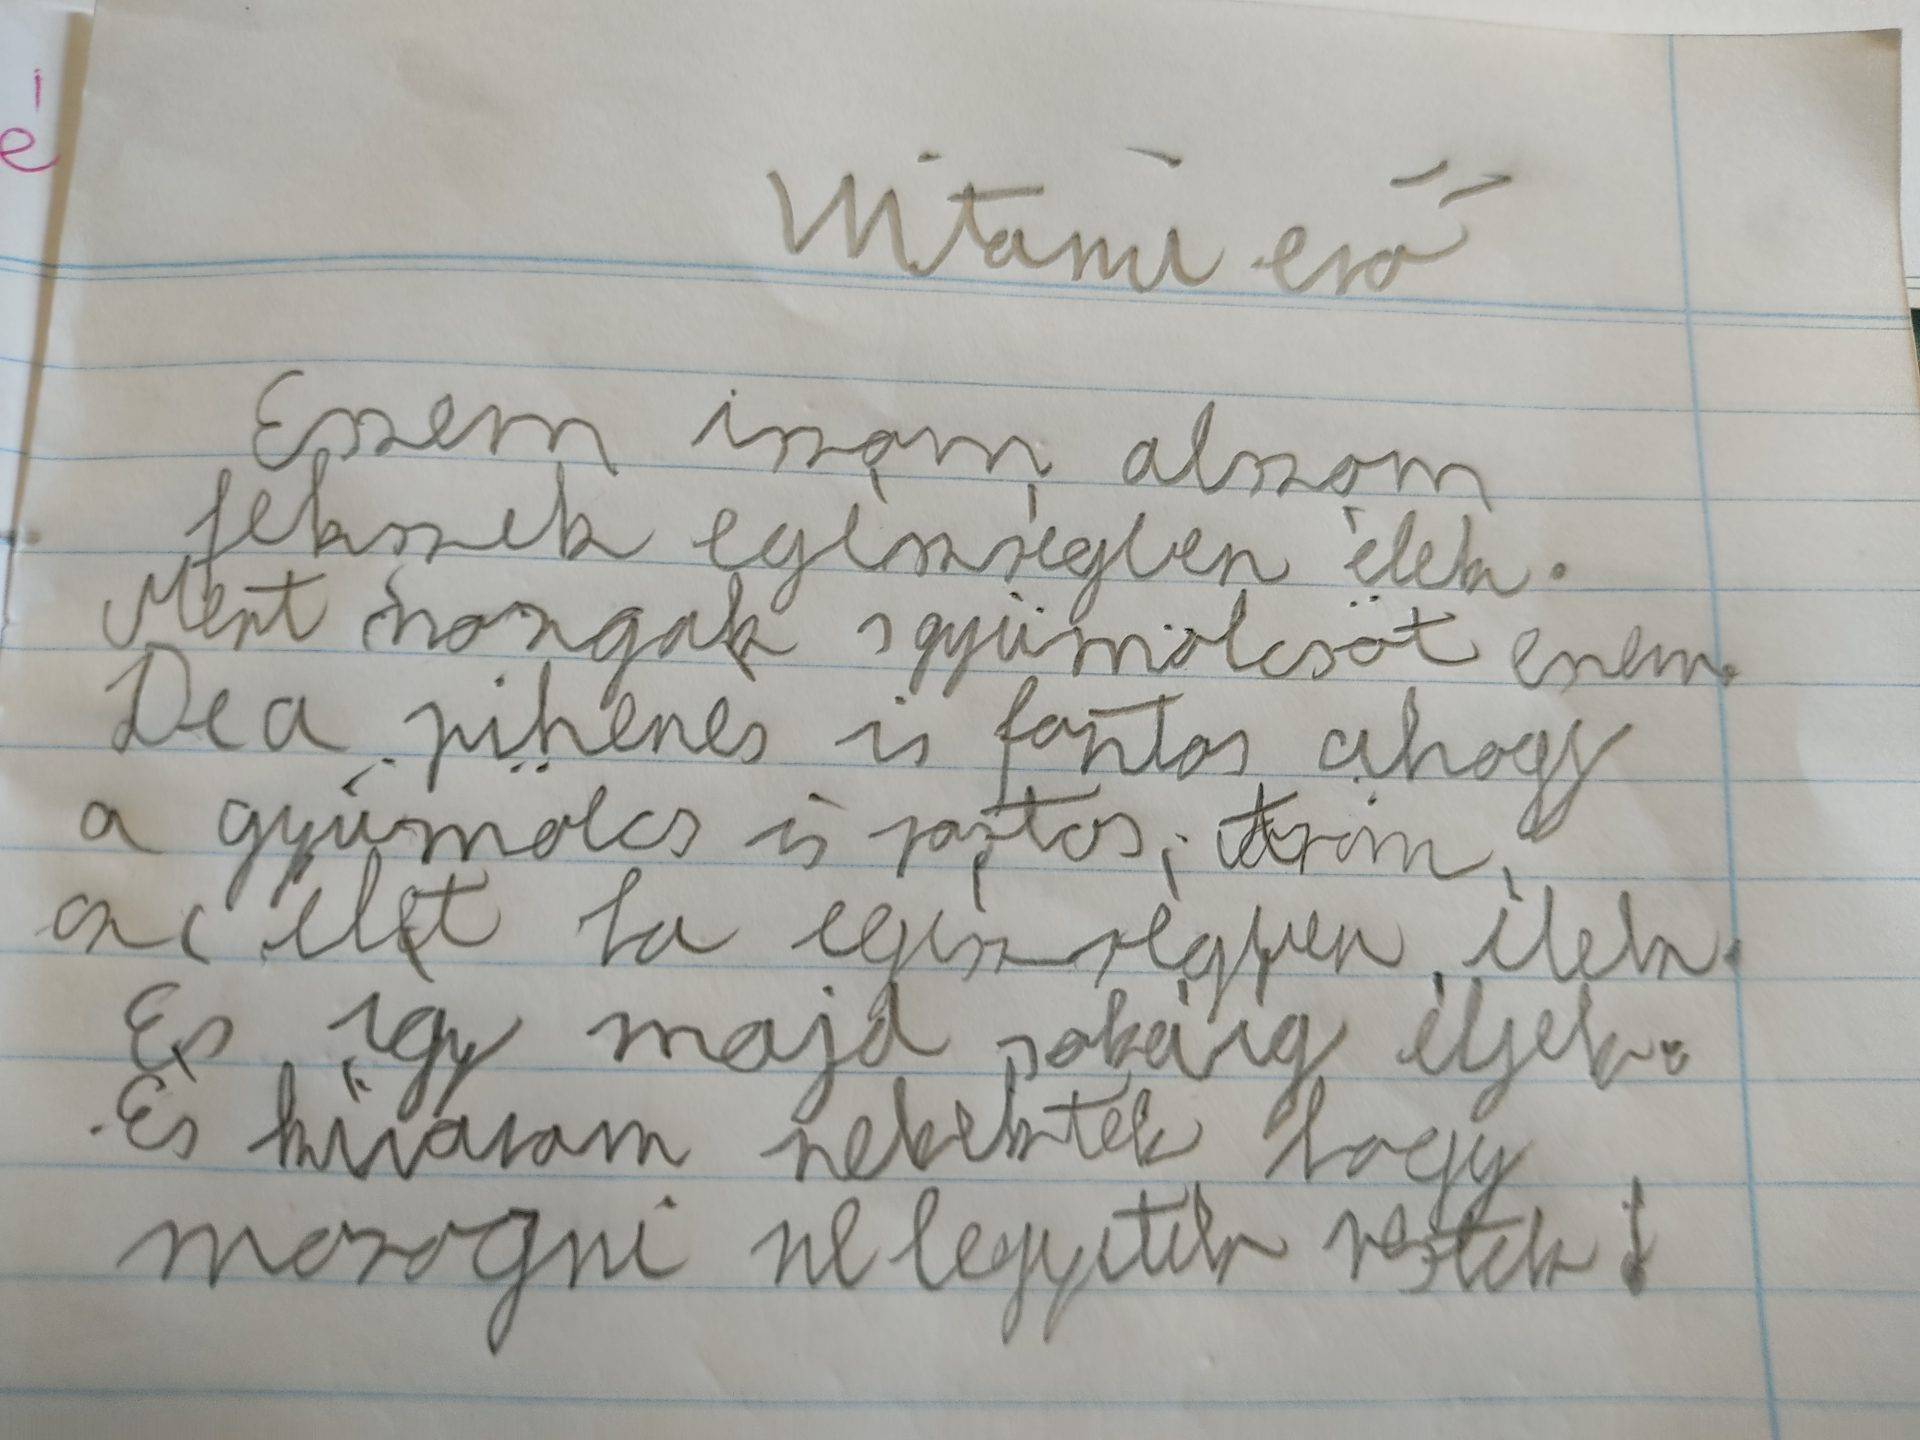 é
Vitami erő
Eszem iszom alszom
fekszek egészségben élek.
Mert mozgak s gyümölcsöt eszem.
De a pihenes is fontos ahogy
a gyümölcs is fontos,
az élet ha egészségben élek.
Es így majd sokáig éljek.
Es kívánom nektek hogy
mozogni ne legyetek restek!